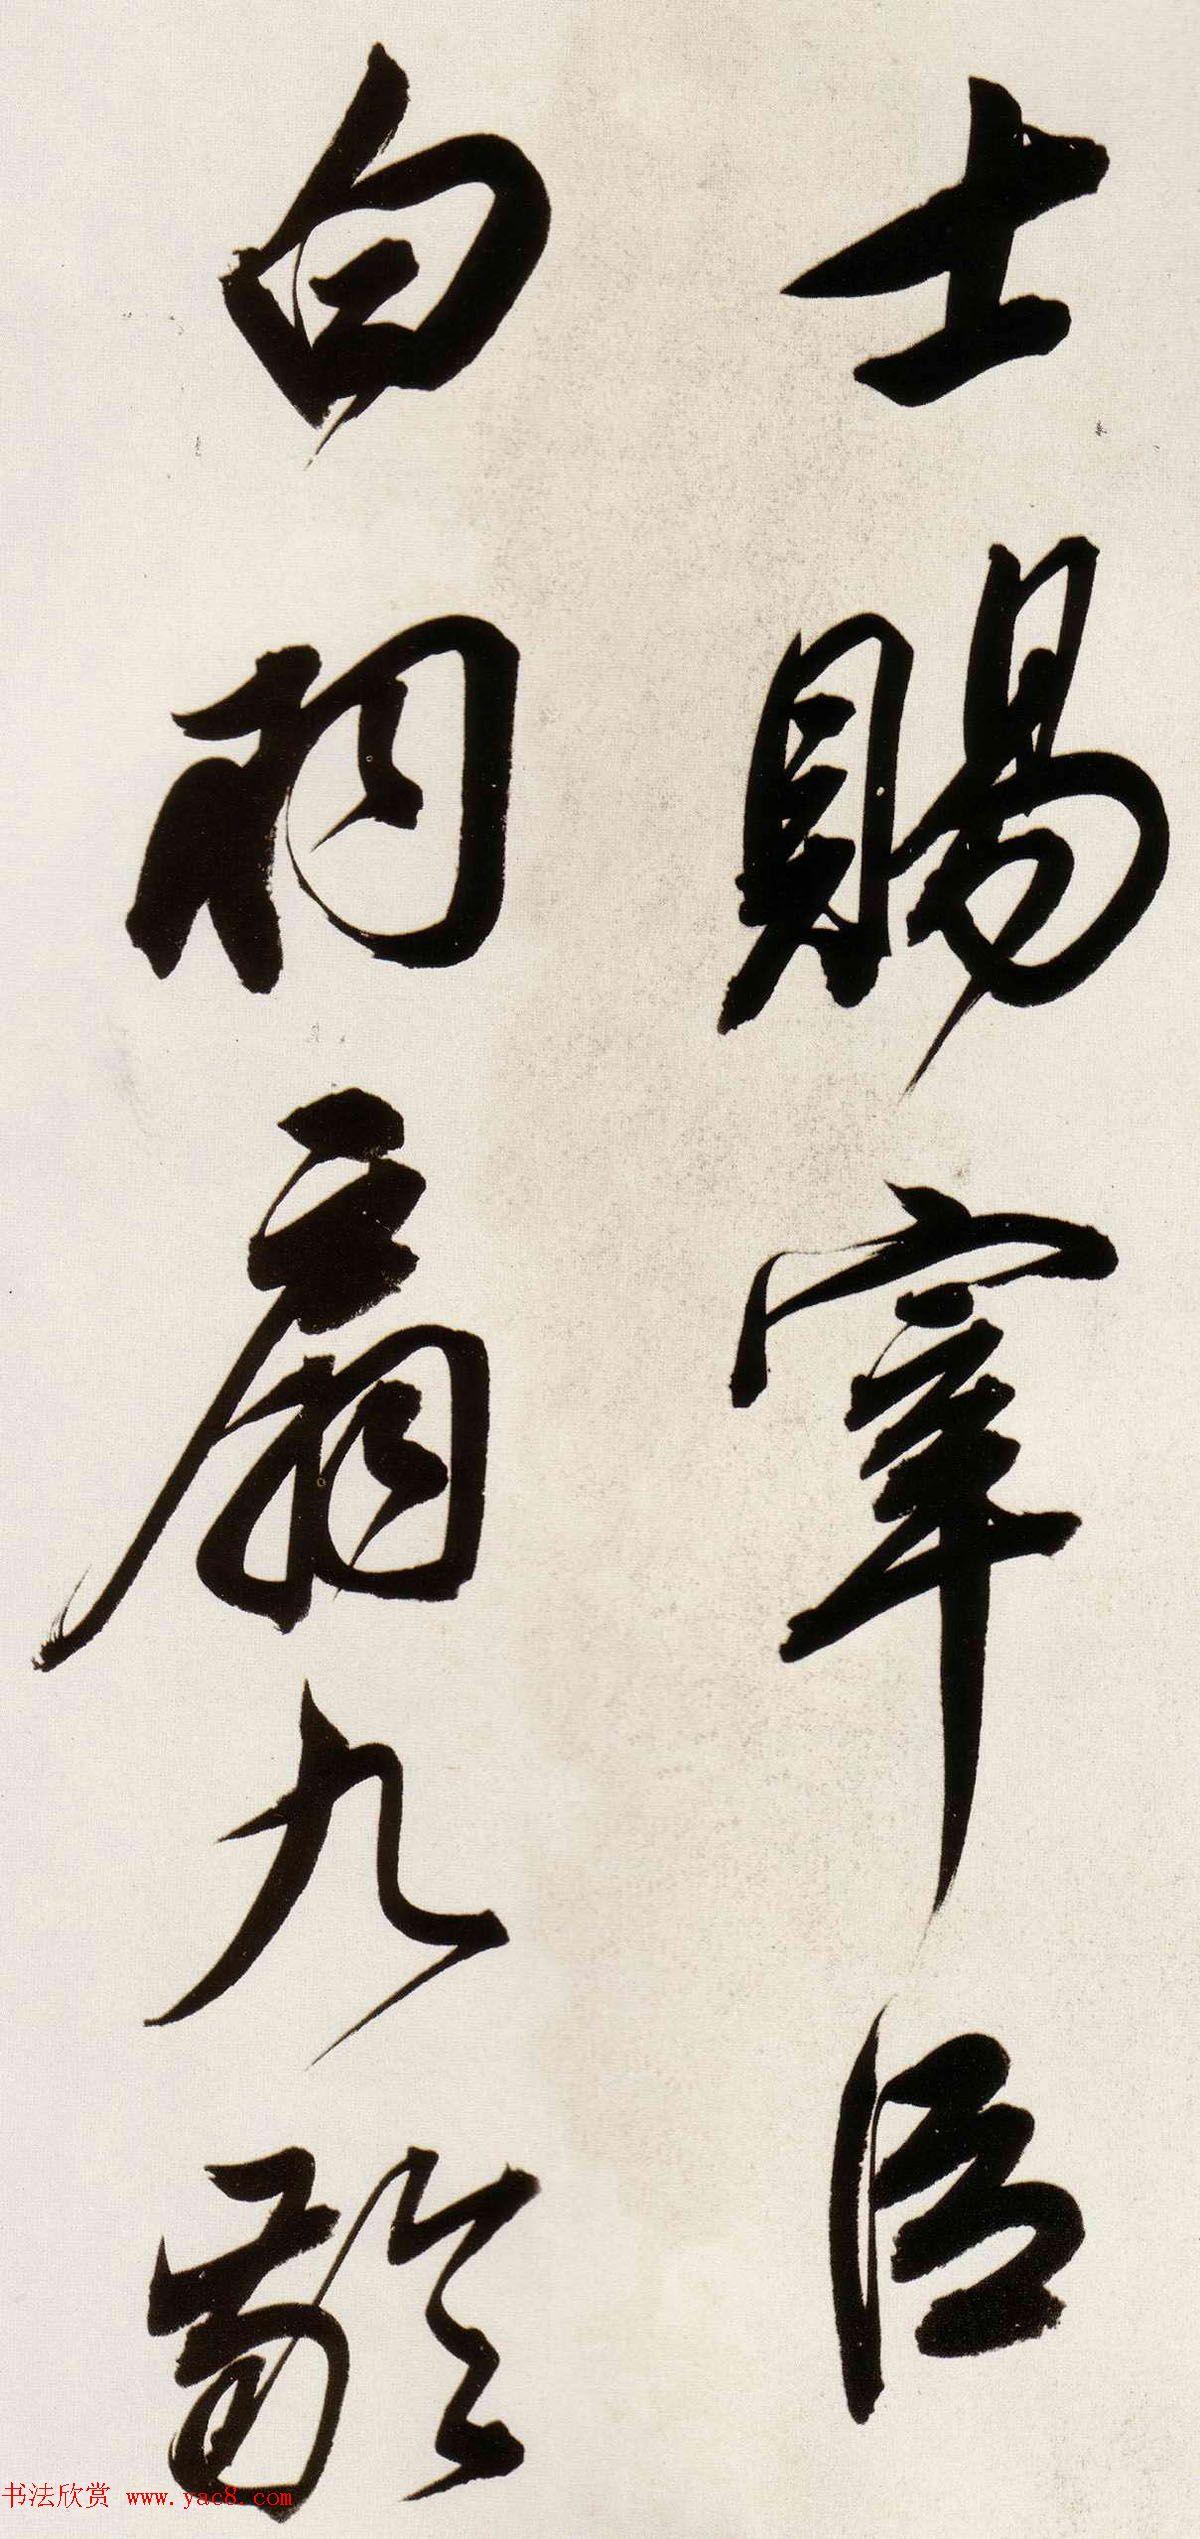 士賜宰臣
白羽扇九齡
书法欣赏 www.yac8.com